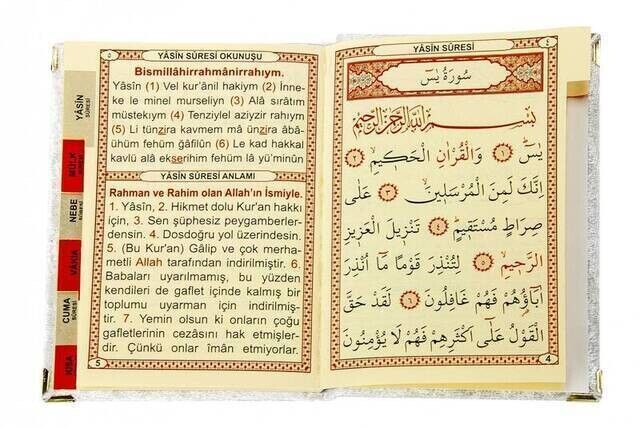 YÂSİN SÛRESİ
٤
سُورَةُ يٰسٓ
بِسْمِ اللهِ الرَّحْمٰنِ الرَّحِيمِ
يٰسٓ ﴿١﴾ وَالْقُرْاٰنِ الْحَكِيمِ ﴿٢﴾
اِنَّكَ لَمِنَ الْمُرْسَلِينَ ﴿٣﴾ عَلٰى
صِرَاطٍ مُسْتَقِيمٍ ﴿٤﴾ تَنْزِيلَ الْعَزِيزِ
الرَّحِيمِ ﴿٥﴾ لِتُنْذِرَ قَوْمًا مَٓا اُنْذِرَ
اٰبَٓاؤُهُمْ فَهُمْ غَافِلُونَ ﴿٦﴾ لَقَدْ حَقَّ
الْقَوْلُ عَلٰٓى اَكْثَرِهِمْ فَهُمْ لَا يُؤْمِنُونَ
4
٥
YÂSİN SÛRESİ OKUNUŞU
Bismillâhirrahmânirrahıym.
Yâsîn (1) Vel kur'ânil hakiym (2) İnne-
ke le minel murseliyn (3) Alâ sırâtim
müstekıym (4) Tenziylel aziyzir rahıym
(5) Li tünzira kavmem mâ ünzira âbâ-
ühüm fehüm ğâfilûn (6) Le kad hakkal
kavlü alâ ekserihim fehüm lâ yü'minûn
YÂSİN SÛRESİ ANLAMI
Rahman ve Rahim olan Allah'ın İsmiyle.
1. Yâsîn, 2. Hikmet dolu Kur'an hakkı
için, 3. Sen şüphesiz peygamberler-
densin. 4. Dosdoğru yol üzerindesin.
5. (Bu Kur'an) Gâlip ve çok merha-
metli Allah tarafından indirilmiştir. 6.
Babaları uyarılmamış, bu yüzden
kendileri de gaflet içinde kalmış bir
toplumu uyarman için indirilmiş-
tir. 7. Yemin olsun ki onların çoğu
gafletlerinin cezasını hak etmişler-
dir. Çünkü onlar îmân etmiyorlar.
5
YÂSİN
SÛRESİ
MÜLK
SÛRESİ
NEBE
SÛRESİ
VÂKIA
CUMA
SÛRESİ
KISA